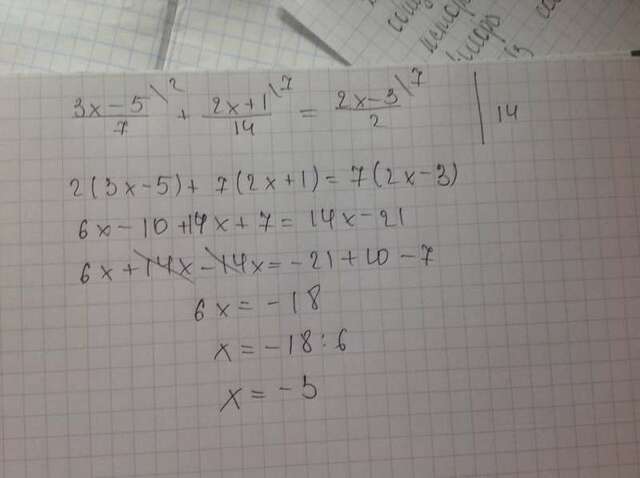 сош
из со
(3x-5)/7 \2 + (2x+1)/14 \7 = (2x-3)/2 \7 | 14
2(3x-5)+ 7(2x+1)= 7(2x-3)
6x-10+14x+7= 14x-21
6x+14x-14x=-21+10-7
6x=-18
x=-18:6
x=-3